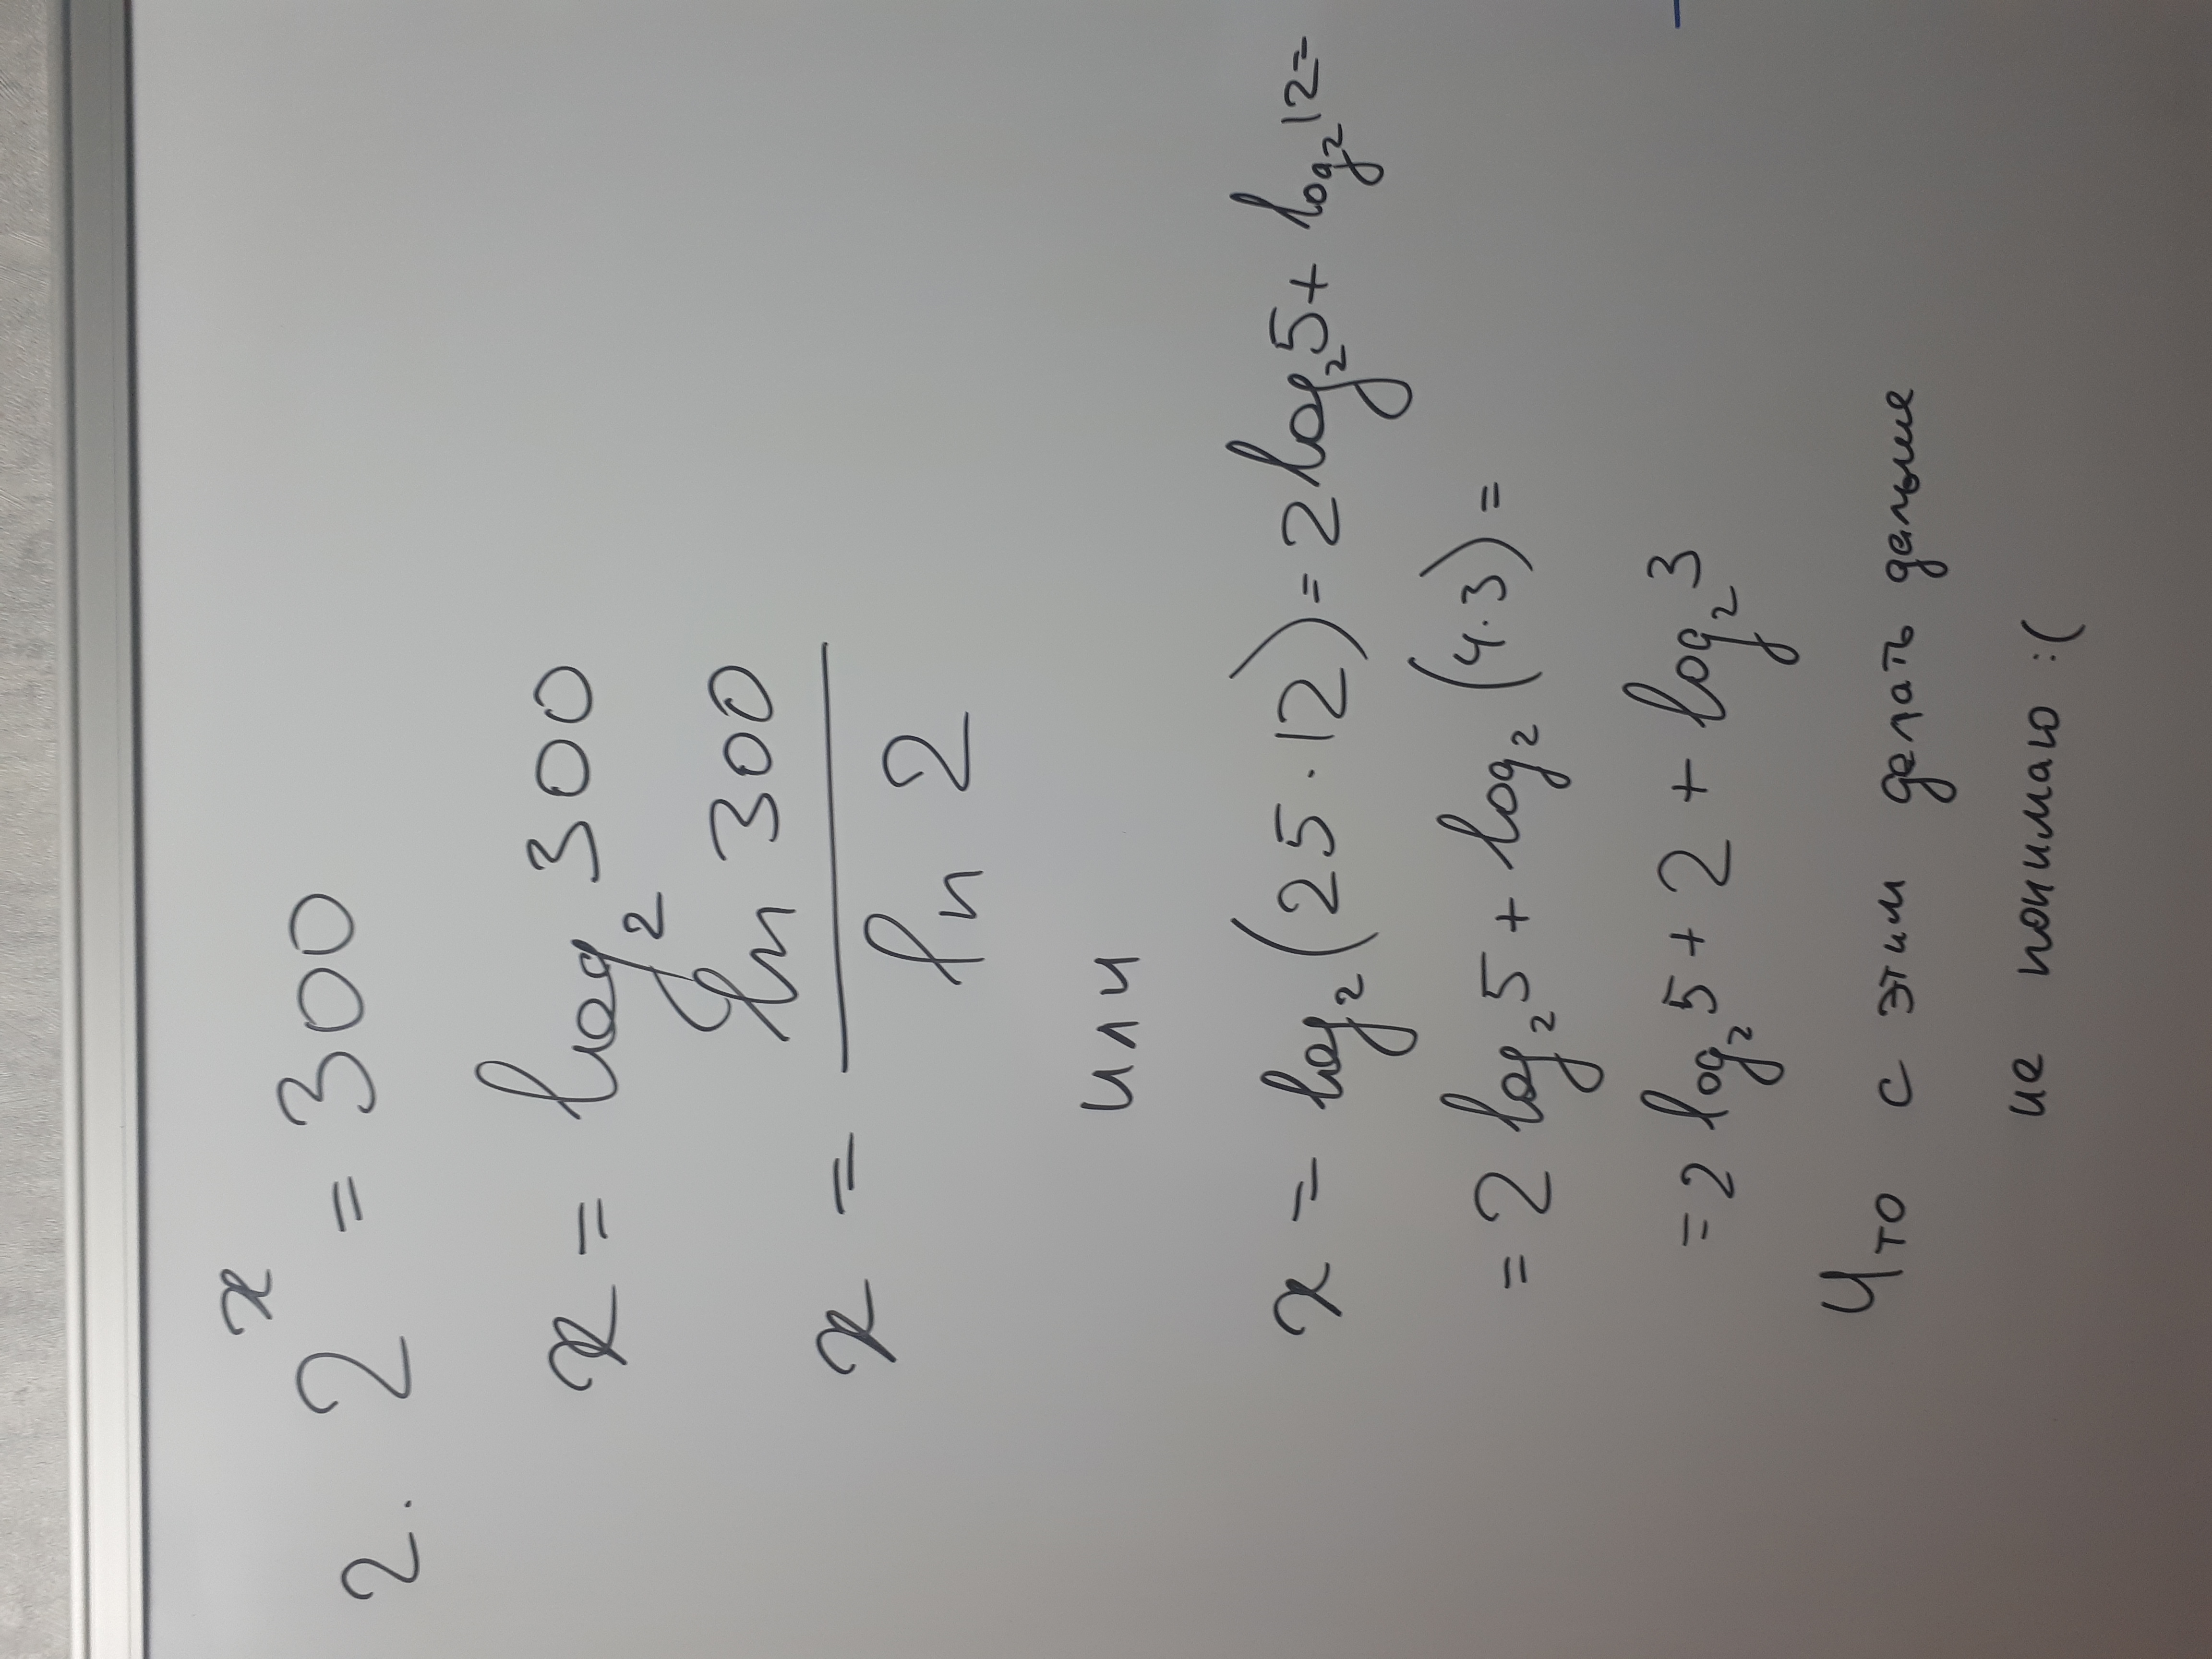 2. 2^x = 300
x = log₂ 300
x = ln 300 / ln 2
или
x = log₂ (25 · 12) = 2 log₂ 5 + log₂ 12 =
= 2 log₂ 5 + log₂ (4 · 3) =
= 2 log₂ 5 + 2 + log₂ 3
Что с этим делать дальше
не понимаю :(